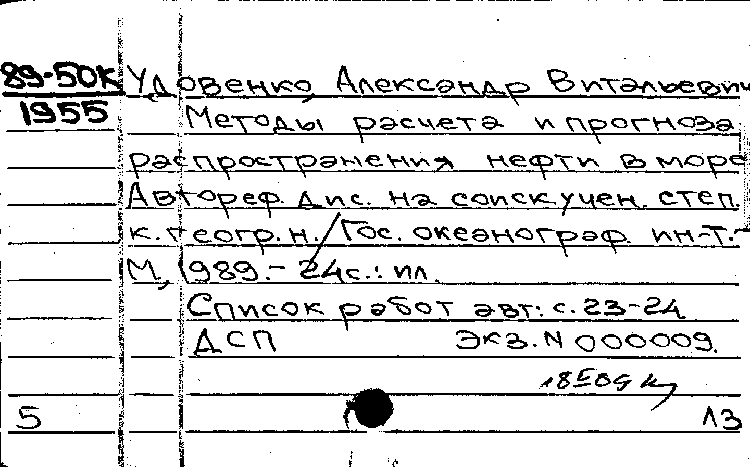 89-50К Удовенко, Александр Витальевич
1955 Методы расчета и прогноза
распространения нефти в море
Автореф. дис. на соиск. учен. степ.
к. геогр. н. / Гос. океанограф. ин-т.-
М, 1989.- 24с.: ил.
Список работ авт: с. 23-24
ДСП Экз. N 000009.
5 ЛЗ